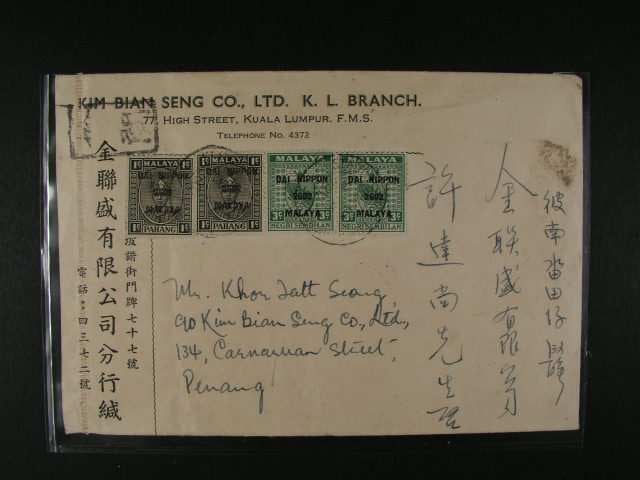 KIM BIAN SENG CO., LTD. K. L. BRANCH.
77, HIGH STREET, KUALA LUMPUR. F.M.S.
TELEPHONE NO. 4372
金聯盛有限公司分行緘
諧街門牌七十七號
電話四三七二號
1c MALAYA 1c
DAI NIPPON
2602
MALAYA
PAHANG
1c MALAYA 1c
DAI NIPPON
2602
MALAYA
PAHANG
MALAYA
DAI NIPPON
2602
MALAYA
3c 3c
NEGRI SEMBILAN
MALAYA
DAI NIPPON
2602
MALAYA
3c 3c
NEGRI SEMBILAN
Mr. Khor Tatt Seong,
c/o Kim Bian Seng Co., Ltd.,
134, Carnarvan Street,
Penang
彼南畓田仔
金联盛有限公司
許達尚先生